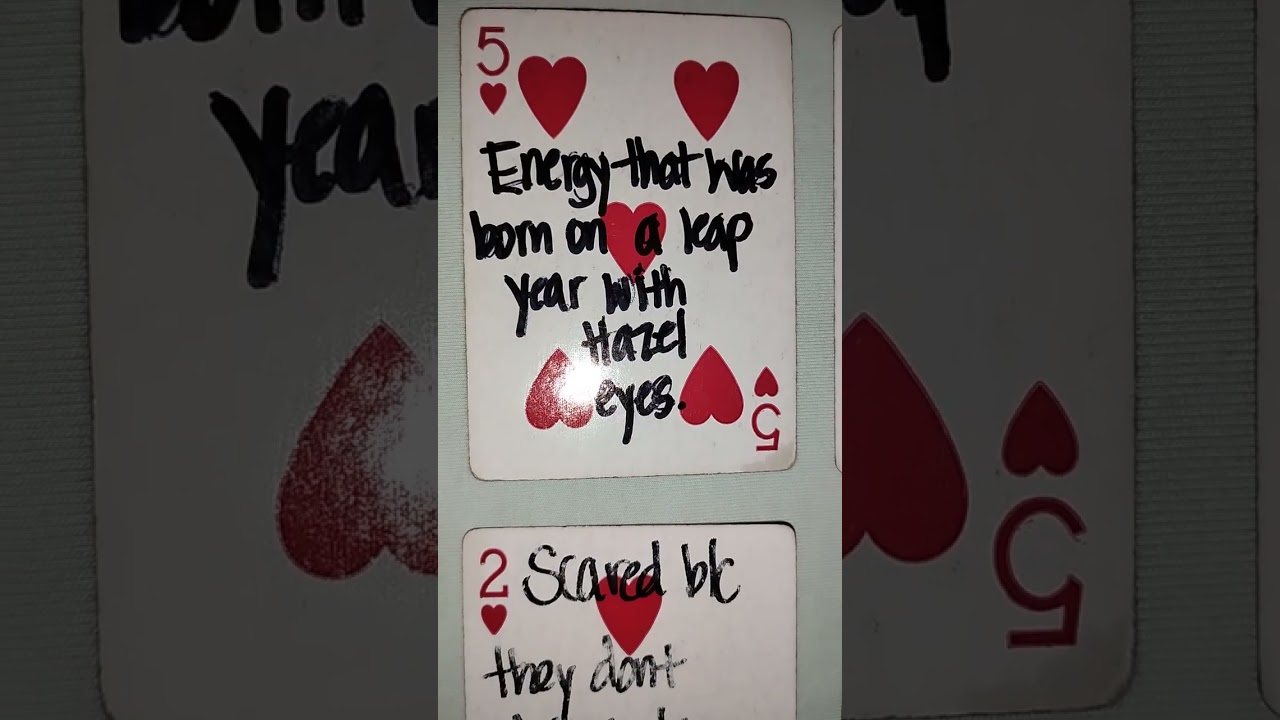 5
Energy that was
born on a leap
year with
Hazel
eyes.
5
2
Scared b/c
they dont